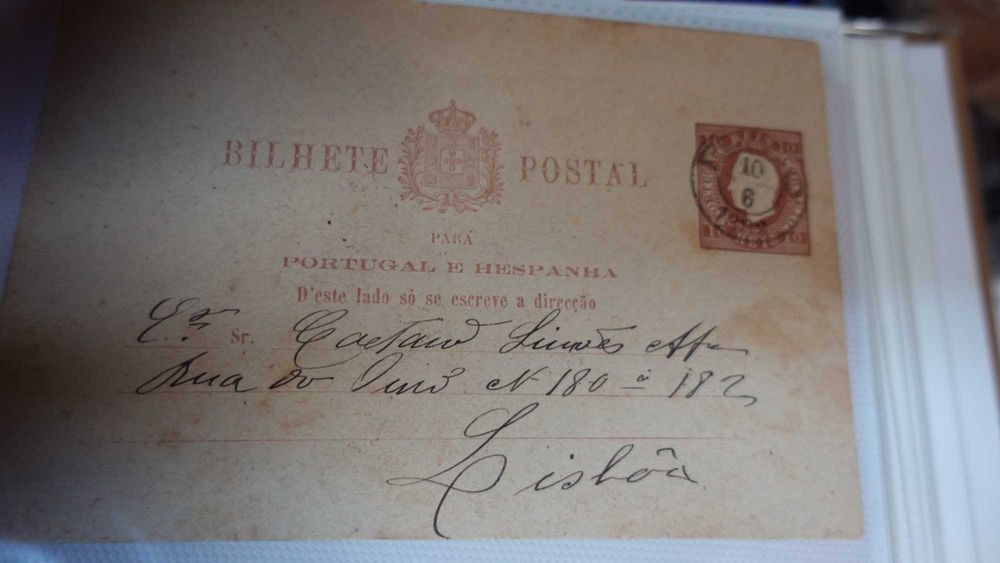 BILHETE POSTAL
10 10
10
6
PARA
PORTUGAL E HESPANHA
D'este lado só se escreve a direcção
Sr. Caetano Simões Aff
Rua do Ouro N 180 a 182
Lisbôa